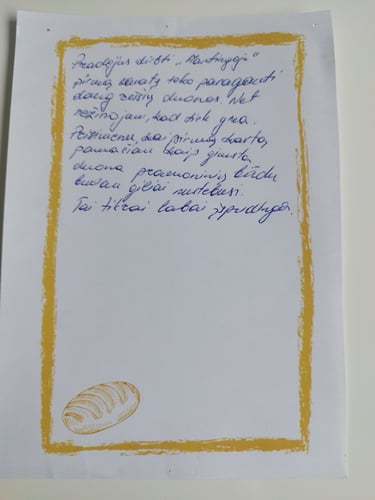 Pradėjus dirbti „Mantingoje"
pirmą karatą teko paragauti
daug rūšių duonos. Net
nežinojau, kad tiek yra.
Prisimenu, kai pirmą kartą
pamačiau kaip gimsta
duona pramoniniu būdu
buvau giliai nustebusi.
Tai tikrai labai įspūdinga.